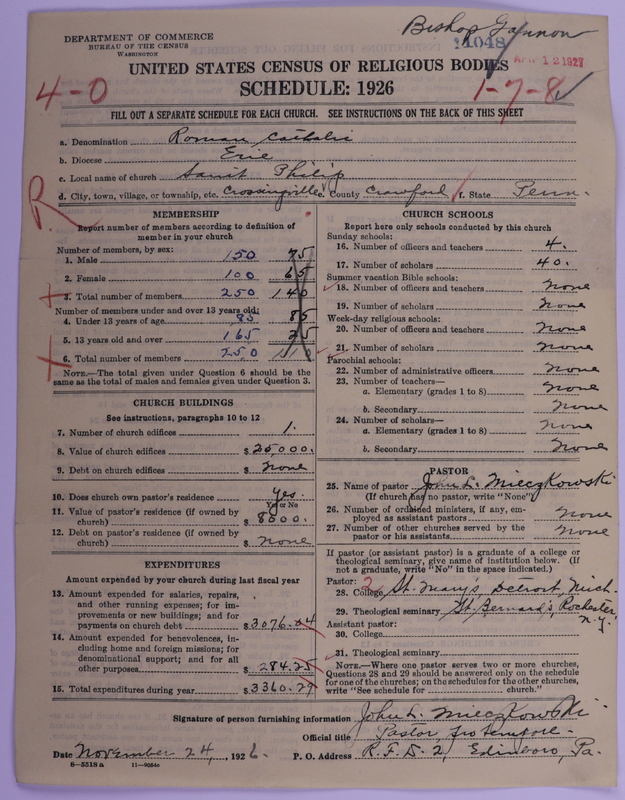 Bishop Gannon
DEPARTMENT OF COMMERCE
BUREAU OF THE CENSUS
WASHINGTON
11048
APR 12 1927
UNITED STATES CENSUS OF RELIGIOUS BODIES
4-0
SCHEDULE: 1926
1-7-8
FILL OUT A SEPARATE SCHEDULE FOR EACH CHURCH. SEE INSTRUCTIONS ON THE BACK OF THIS SHEET
a. Denomination Roman Catholic
b. Diocese Erie
c. Local name of church Saint Philip
d. City, town, village, or township, etc. Crossingville e. County Crawford f. State Penn.
R
MEMBERSHIP
Report number of members according to definition of
member in your church
Number of members, by sex:
1. Male 150 75
2. Female 100 65
3. Total number of members 250 140
Number of members under and over 13 years old:
4. Under 13 years of age 85 85
5. 13 years old and over 165 25
6. Total number of members 250 110
NOTE.—The total given under Question 6 should be the
same as the total of males and females given under Question 3.
CHURCH BUILDINGS
See instructions, paragraphs 10 to 12
7. Number of church edifices 1.
8. Value of church edifices $ 25,000.
9. Debt on church edifices $ None
10. Does church own pastor's residence yes.
Yes or No
11. Value of pastor's residence (if owned by
church) $ 8000.
12. Debt on pastor's residence (if owned by
church) $ None
EXPENDITURES
Amount expended by your church during last fiscal year
13. Amount expended for salaries, repairs,
and other running expenses; for im-
provements or new buildings; and for
payments on church debt $ 3076.04
14. Amount expended for benevolences, in-
cluding home and foreign missions; for
denominational support; and for all
other purposes $ 284.25
15. Total expenditures during year $ 3360.29
CHURCH SCHOOLS
Report here only schools conducted by this church
Sunday schools:
16. Number of officers and teachers 4.
17. Number of scholars 40.
Summer vacation Bible schools:
18. Number of officers and teachers None
19. Number of scholars None
Week-day religious schools:
20. Number of officers and teachers None
21. Number of scholars None
Parochial schools:
22. Number of administrative officers None
23. Number of teachers—
a. Elementary (grades 1 to 8) None
b. Secondary None
24. Number of scholars—
a. Elementary (grades 1 to 8) None
b. Secondary None
PASTOR
25. Name of pastor John L. Mieczkowski
(If church has no pastor, write "None")
26. Number of ordained ministers, if any, em-
ployed as assistant pastors None
27. Number of other churches served by the
pastor or his assistants None
If pastor (or assistant pastor) is a graduate of a college or
theological seminary, give name of institution below. (If
not a graduate, write "No" in the space indicated.)
Pastor: 2
28. College St. Mary's, Detroit, Mich.
29. Theological seminary St. Bernard's, Rochester
N.Y.
Assistant pastor:
30. College
31. Theological seminary
NOTE.—Where one pastor serves two or more churches,
Questions 28 and 29 should be answered only on the schedule
for one of the churches; on the schedules for the other churches,
write "See schedule for church."
Signature of person furnishing information John L. Mieczkowski
Official title Pastor, pro tempore.
Date November 24, 1926. P. O. Address R.F.D. 2, Edinboro, Pa.
8—5518a 11—9054c